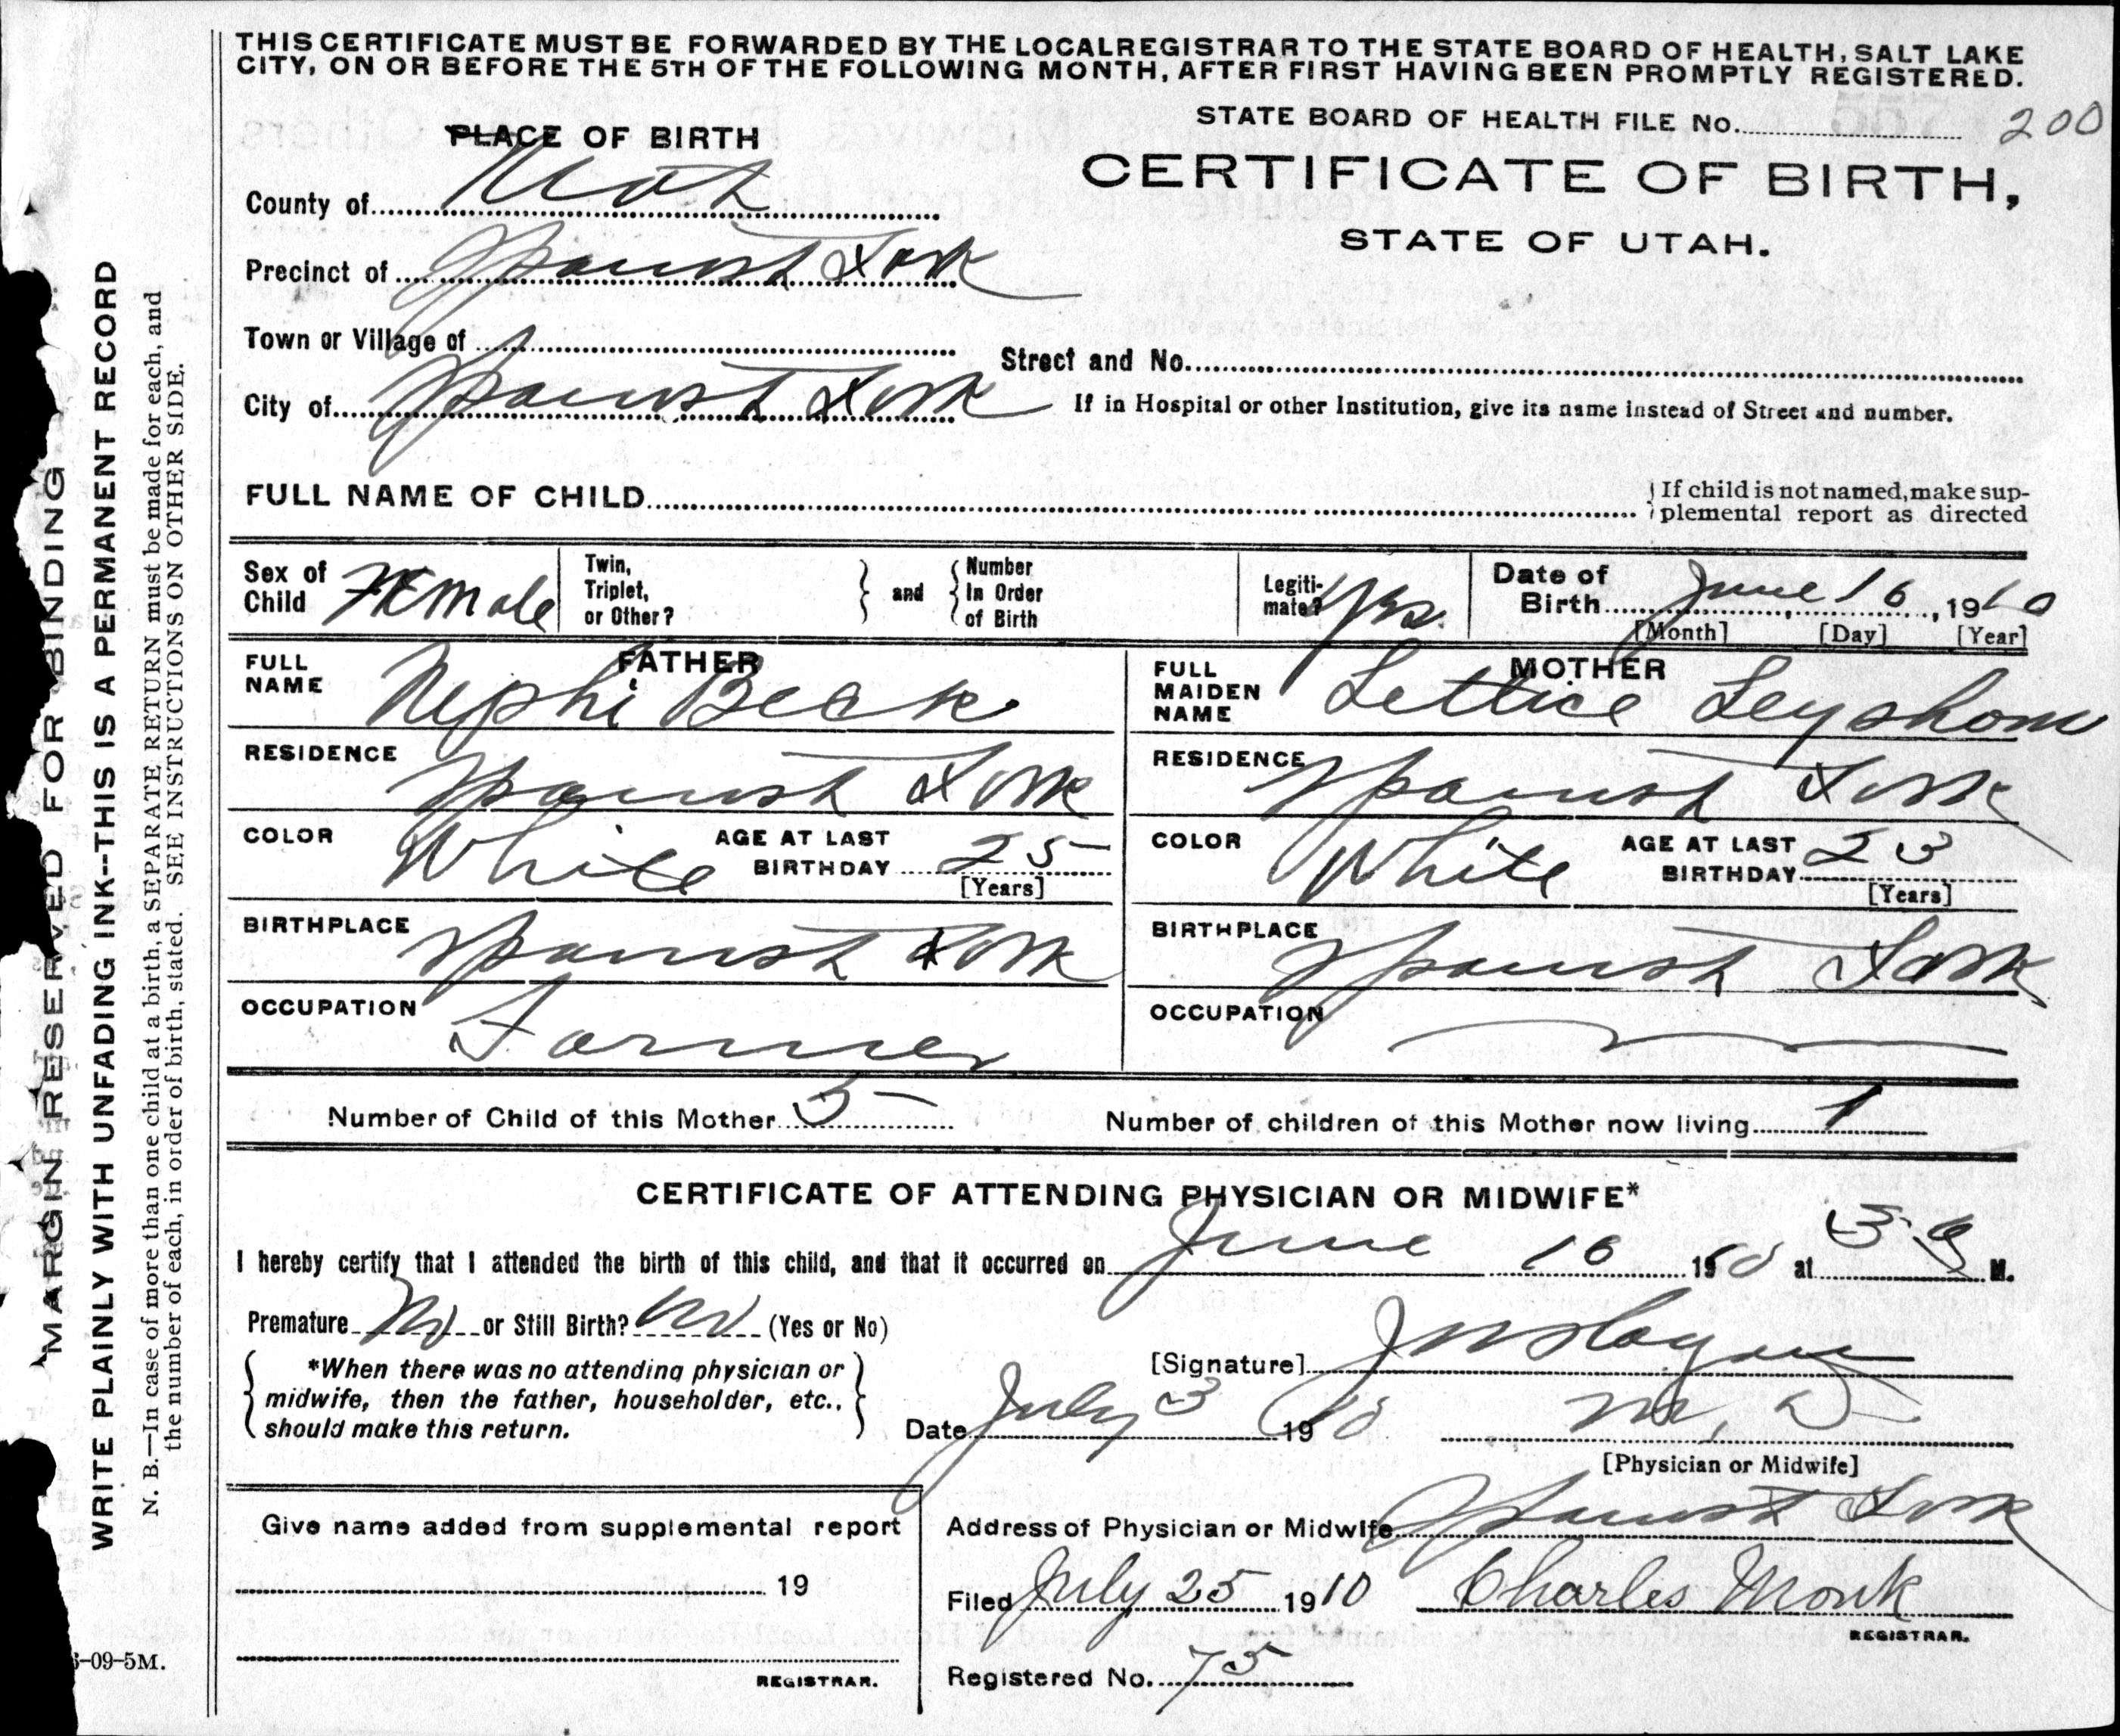 THIS CERTIFICATE MUST BE FORWARDED BY THE LOCAL REGISTRAR TO THE STATE BOARD OF HEALTH, SALT LAKE
CITY, ON OR BEFORE THE 5TH OF THE FOLLOWING MONTH, AFTER FIRST HAVING BEEN PROMPTLY REGISTERED.
STATE BOARD OF HEALTH FILE No. 200
PLACE OF BIRTH
CERTIFICATE OF BIRTH,
STATE OF UTAH.
County of Utah
Precinct of Spanish Fork
Town or Village of
Street and No.
City of Spanish Fork
If in Hospital or other Institution, give its name instead of Street and number.
FULL NAME OF CHILD
If child is not named, make sup-
plemental report as directed
Sex of Child Female
Twin, Triplet, or Other? and Number In Order of Birth
Legiti-mate? Yes
Date of Birth June 16, 1910
[Month] [Day] [Year]
FATHER
FULL NAME Nephi Beck
MOTHER
FULL MAIDEN NAME Lettice Leyshon
RESIDENCE Spanish Fork
RESIDENCE Spanish Fork
COLOR White AGE AT LAST BIRTHDAY 25 [Years]
COLOR White AGE AT LAST BIRTHDAY 23 [Years]
BIRTHPLACE Spanish Fork
BIRTHPLACE Spanish Fork
OCCUPATION Farmer
OCCUPATION
Number of Child of this Mother 5
Number of children of this Mother now living 1
CERTIFICATE OF ATTENDING PHYSICIAN OR MIDWIFE*
I hereby certify that I attended the birth of this child, and that it occurred on June 16 1910 at M.
Premature No or Still Birth? No (Yes or No)
*When there was no attending physician or
midwife, then the father, householder, etc.,
should make this return.
[Signature]
Date July 3 1910 M. D
[Physician or Midwife]
Give name added from supplemental report
19
REGISTRAR.
Address of Physician or Midwife Spanish Fork
Filed July 25 1910 Charles Monk
REGISTRAR.
Registered No. 75
MARGIN RESERVED FOR BINDING
WRITE PLAINLY WITH UNFADING INK--THIS IS A PERMANENT RECORD
N. B.—In case of more than one child at a birth, a SEPARATE RETURN must be made for each, and
the number of each, in order of birth, stated. SEE INSTRUCTIONS ON OTHER SIDE.
-09-5M.